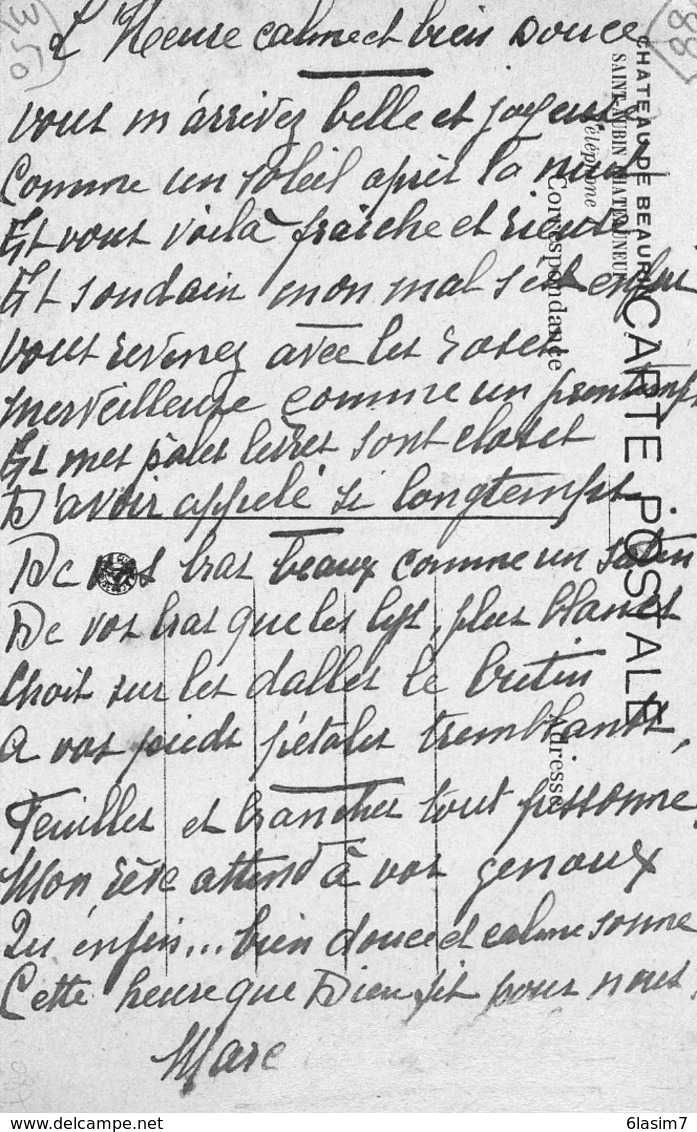 L'Heure calme et bien Douce
vous m'arrivez belle et joyeuse
Comme un soleil après la nuit
Et vous voilà fraîche et rieuse
Et soudain mon mal s'est enfui
vous revenez avec les roses
merveilleuse comme un printemps
Et mes pâles lèvres sont closes
D'avoir appelé si longtemps
De vos bras beaux comme un satin
De vos bras que les lys, plus blancs
Choit sur les dalles le butin
A vos pieds pétales tremblants,
Feuilles et branches tout frissonne
Mon rêve attend à vos genoux
Qu'enfin... bien douce et calme sonne
Cette heure que Dieu fit pour nous.
Marc
CHATEAU DE BEAU
SAINT-AUBIN CHATEAUNEUF
Téléphone
CARTE POSTALE
Correspondance
Adresse
3,50
88
delcampe.net
6lasim7